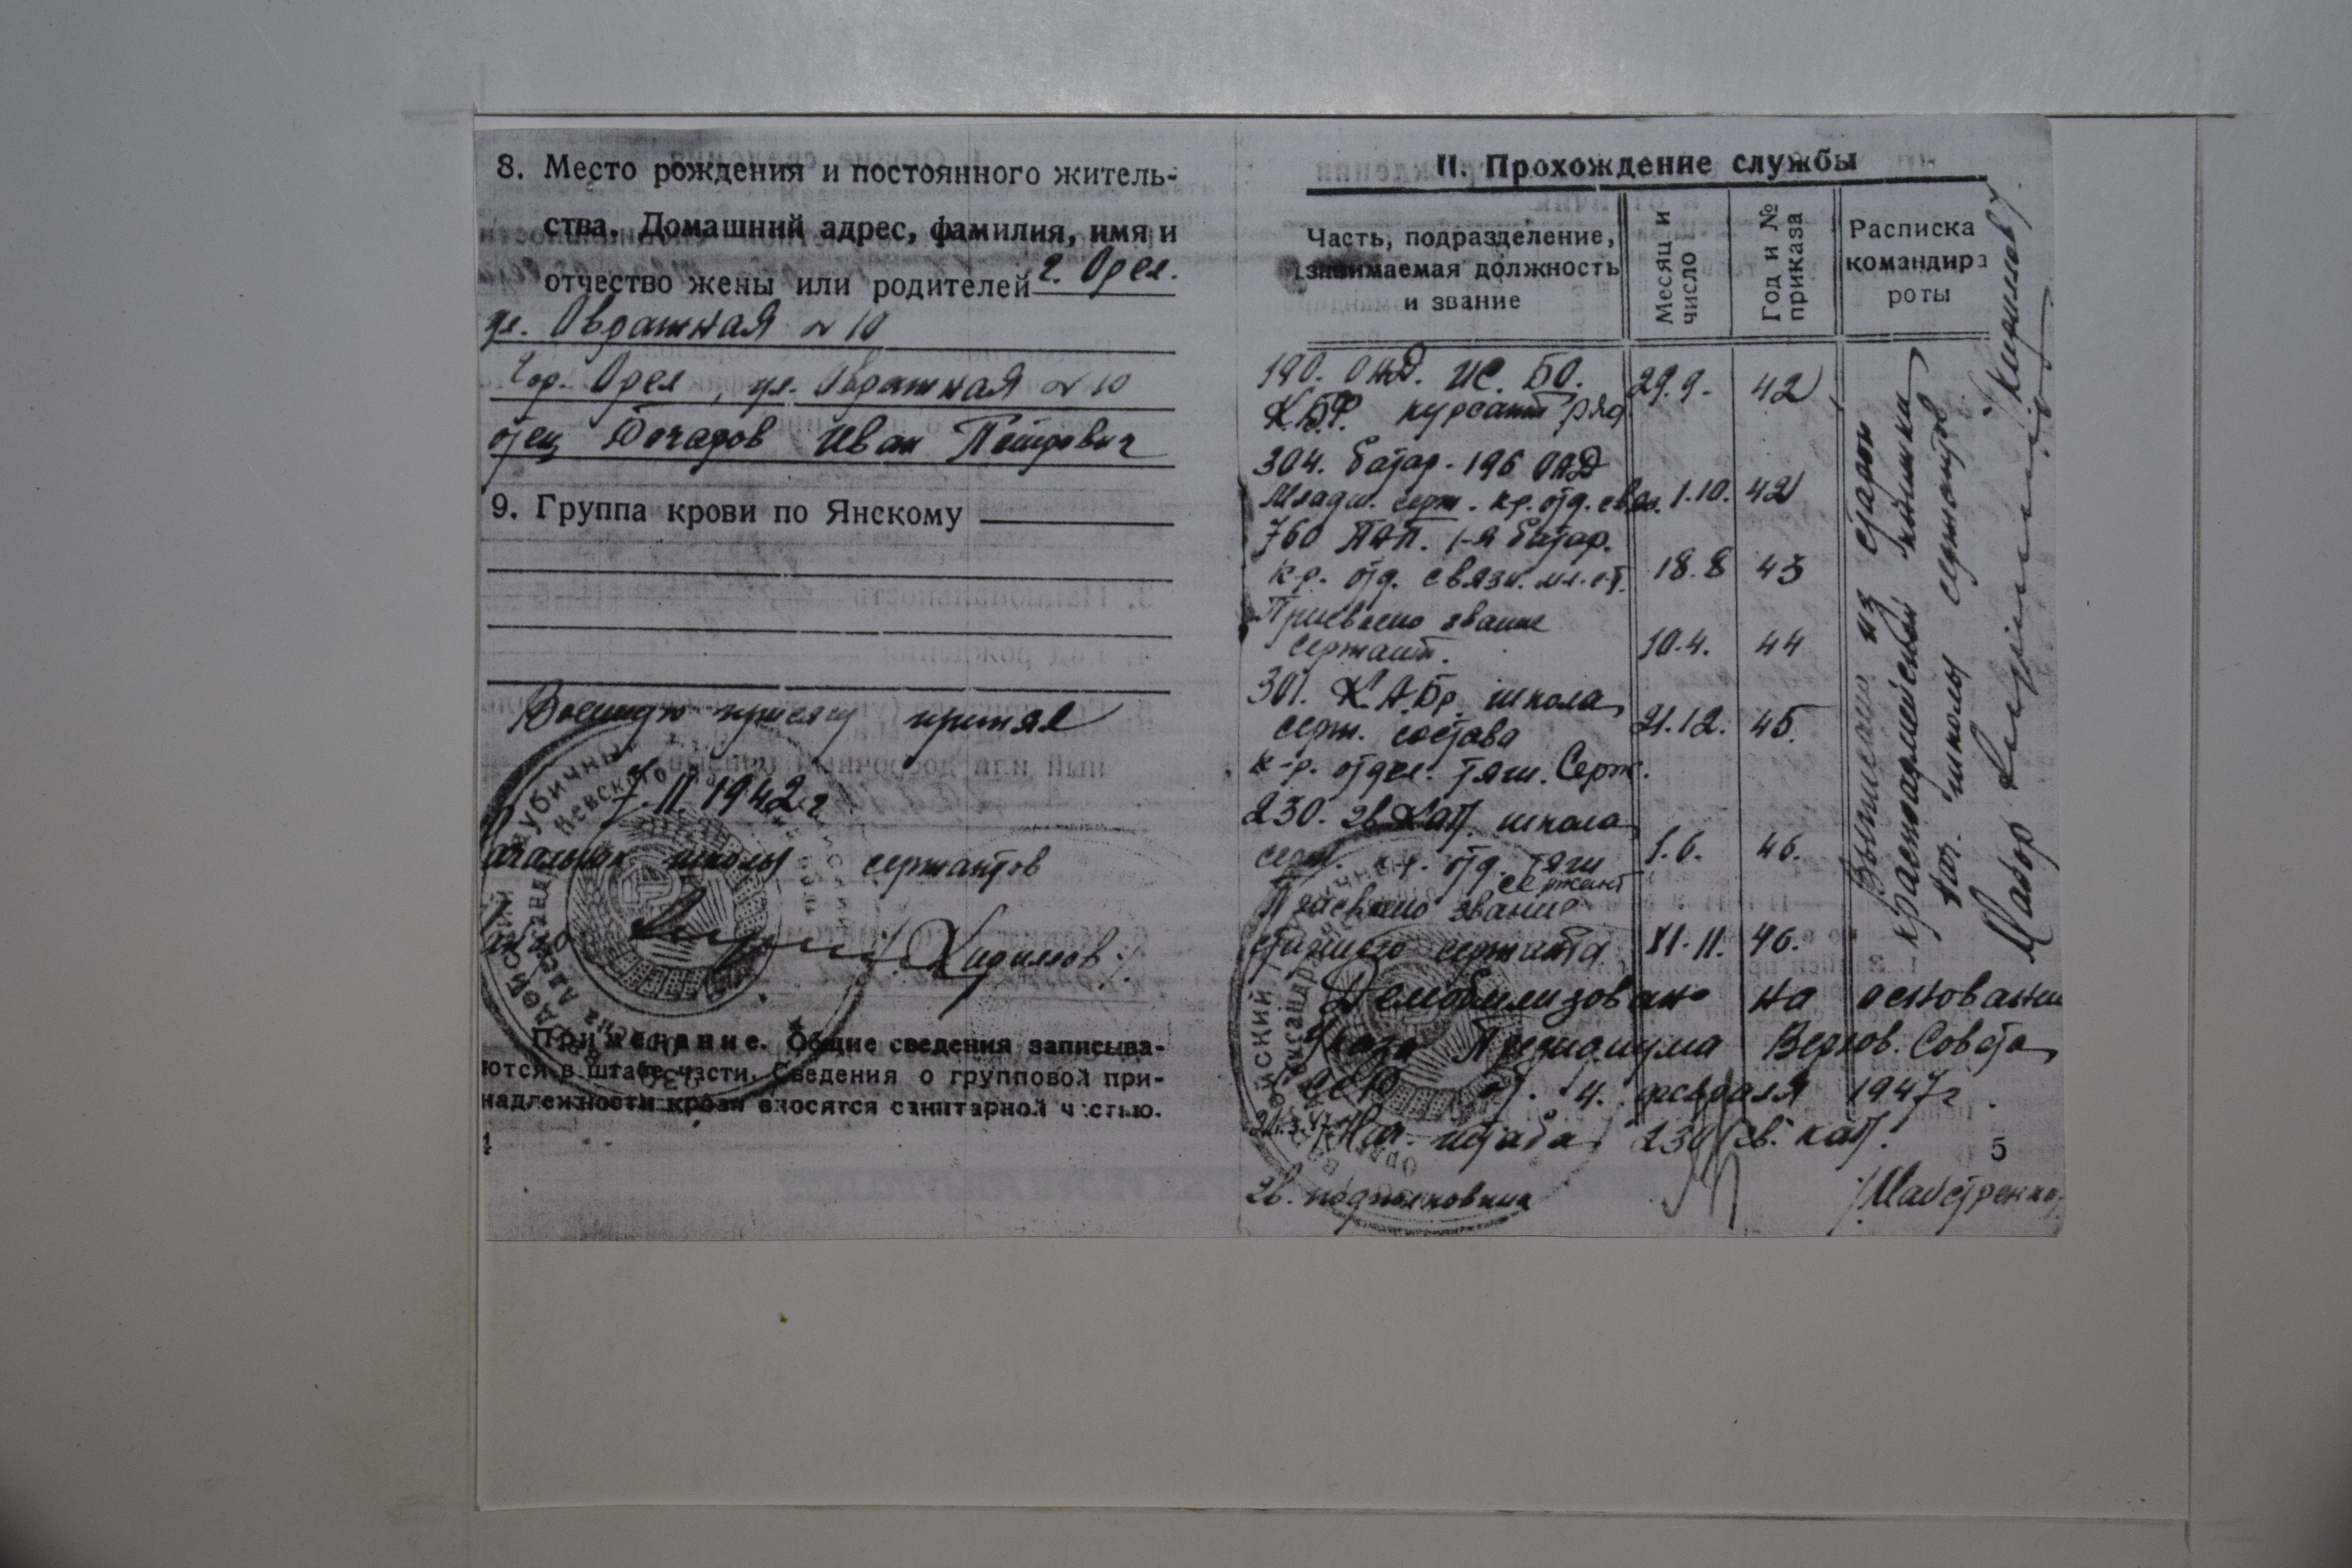 8. Место рождения и постоянного житель-
ства. Домашний адрес, фамилия, имя и
отчество жены или родителей г. Орел.
ул. Овражная № 10
Гор. Орел, ул. Овражная № 10
отец Бочаров Иван Петрович
9. Группа крови по Янскому
Военную присягу принял
7. II 1942 г
начальник школы сержантов
/Кириллов/
Примечание. Общие сведения записыва-
ются в штабе части. Сведения о групповой при-
надлежности крови вносятся санитарной частью.
4
II. Прохождение службы
Часть, подразделение,
занимаемая должность
и звание
Месяц и
число
Год и №
приказа
Расписка
командира
роты
190. ОАД. ИС. БО. 29.9. 42
КБФ. курсант ряд
304. батар. 196 ОАД
Младш. серж. к-р. отд. связ. 1.10. 42
760 ПАП. 1-я батар.
к-р. отд. связи. мл. с-т. 18.8 43
Присвоено звание
сержант. 10.4. 44
301. К.А.Бр. школа
серж. состава 21.12. 45.
к-р. отдел. тяги. Серж.
230. гв. КАП. школа
серж. к-р. отд. тяги 1.6. 46.
сержант
Присвоено звание
старшего сержанта XI. 11. 46.
Выписано из старой
красноармейской книжки
Нач. школы сержантов
Майор /Кириллов/
Демобилизован на основании
Указа Президиума Верхов. Совета
СССР от. 4. февраля 1947 г.
Нач. штаба 230 гв. кап.
5
гв. подполковник /Майстренко/